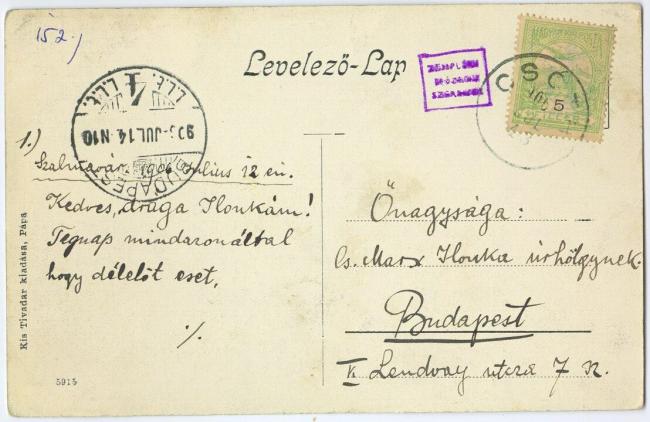 152.)
Levelező-Lap
BUDAPEST
905 JUL. 14. N10
1.)
július 12 én.
Kedves, drága Ilonkám!
Tegnap mindaronáltal
hogy délelőt eset,
·/.
Önagysága:
Cs. Marx Ilonka úrhölgynek.
Budapest
Lendvay utcza 7 sz.
Kis Tivadar kiadása, Pápa
5915